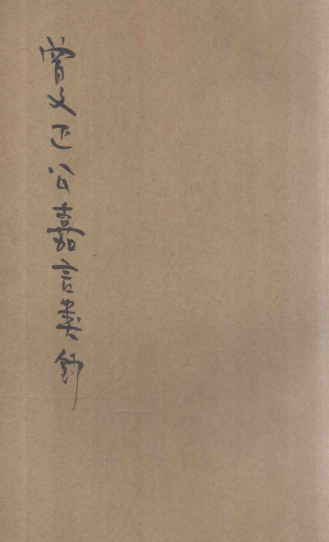 曾文正公嘉言類鈔